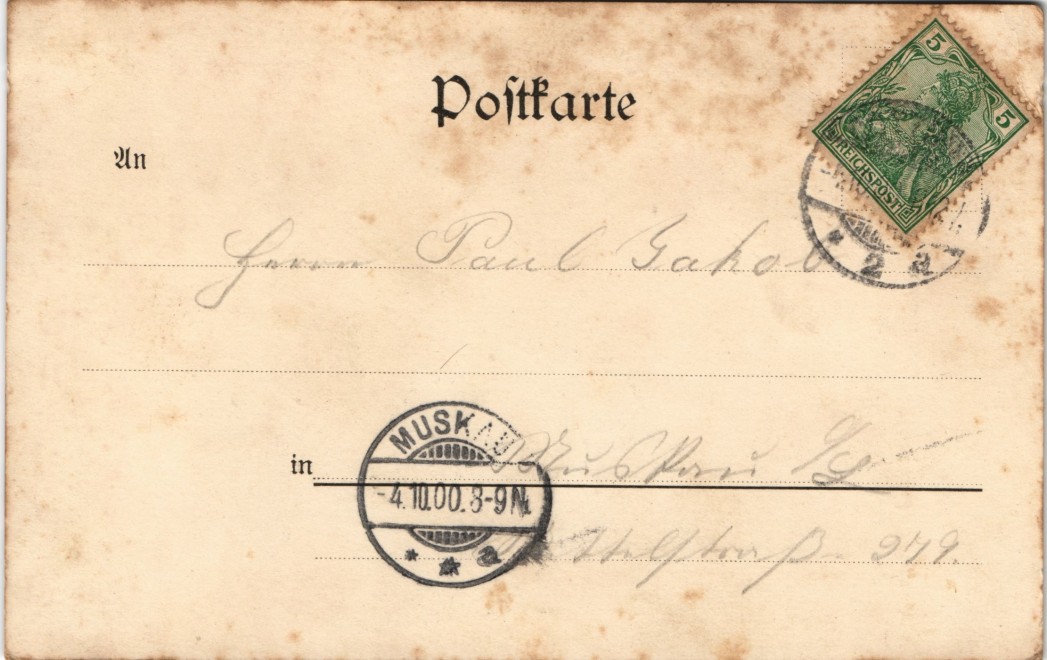 Postkarte
5
5
REICHSPOST
An
Herrn Paul Jakob
2 a
MUSKAU
in Muskau
-4.10.00.8-9N.
* * a
279.